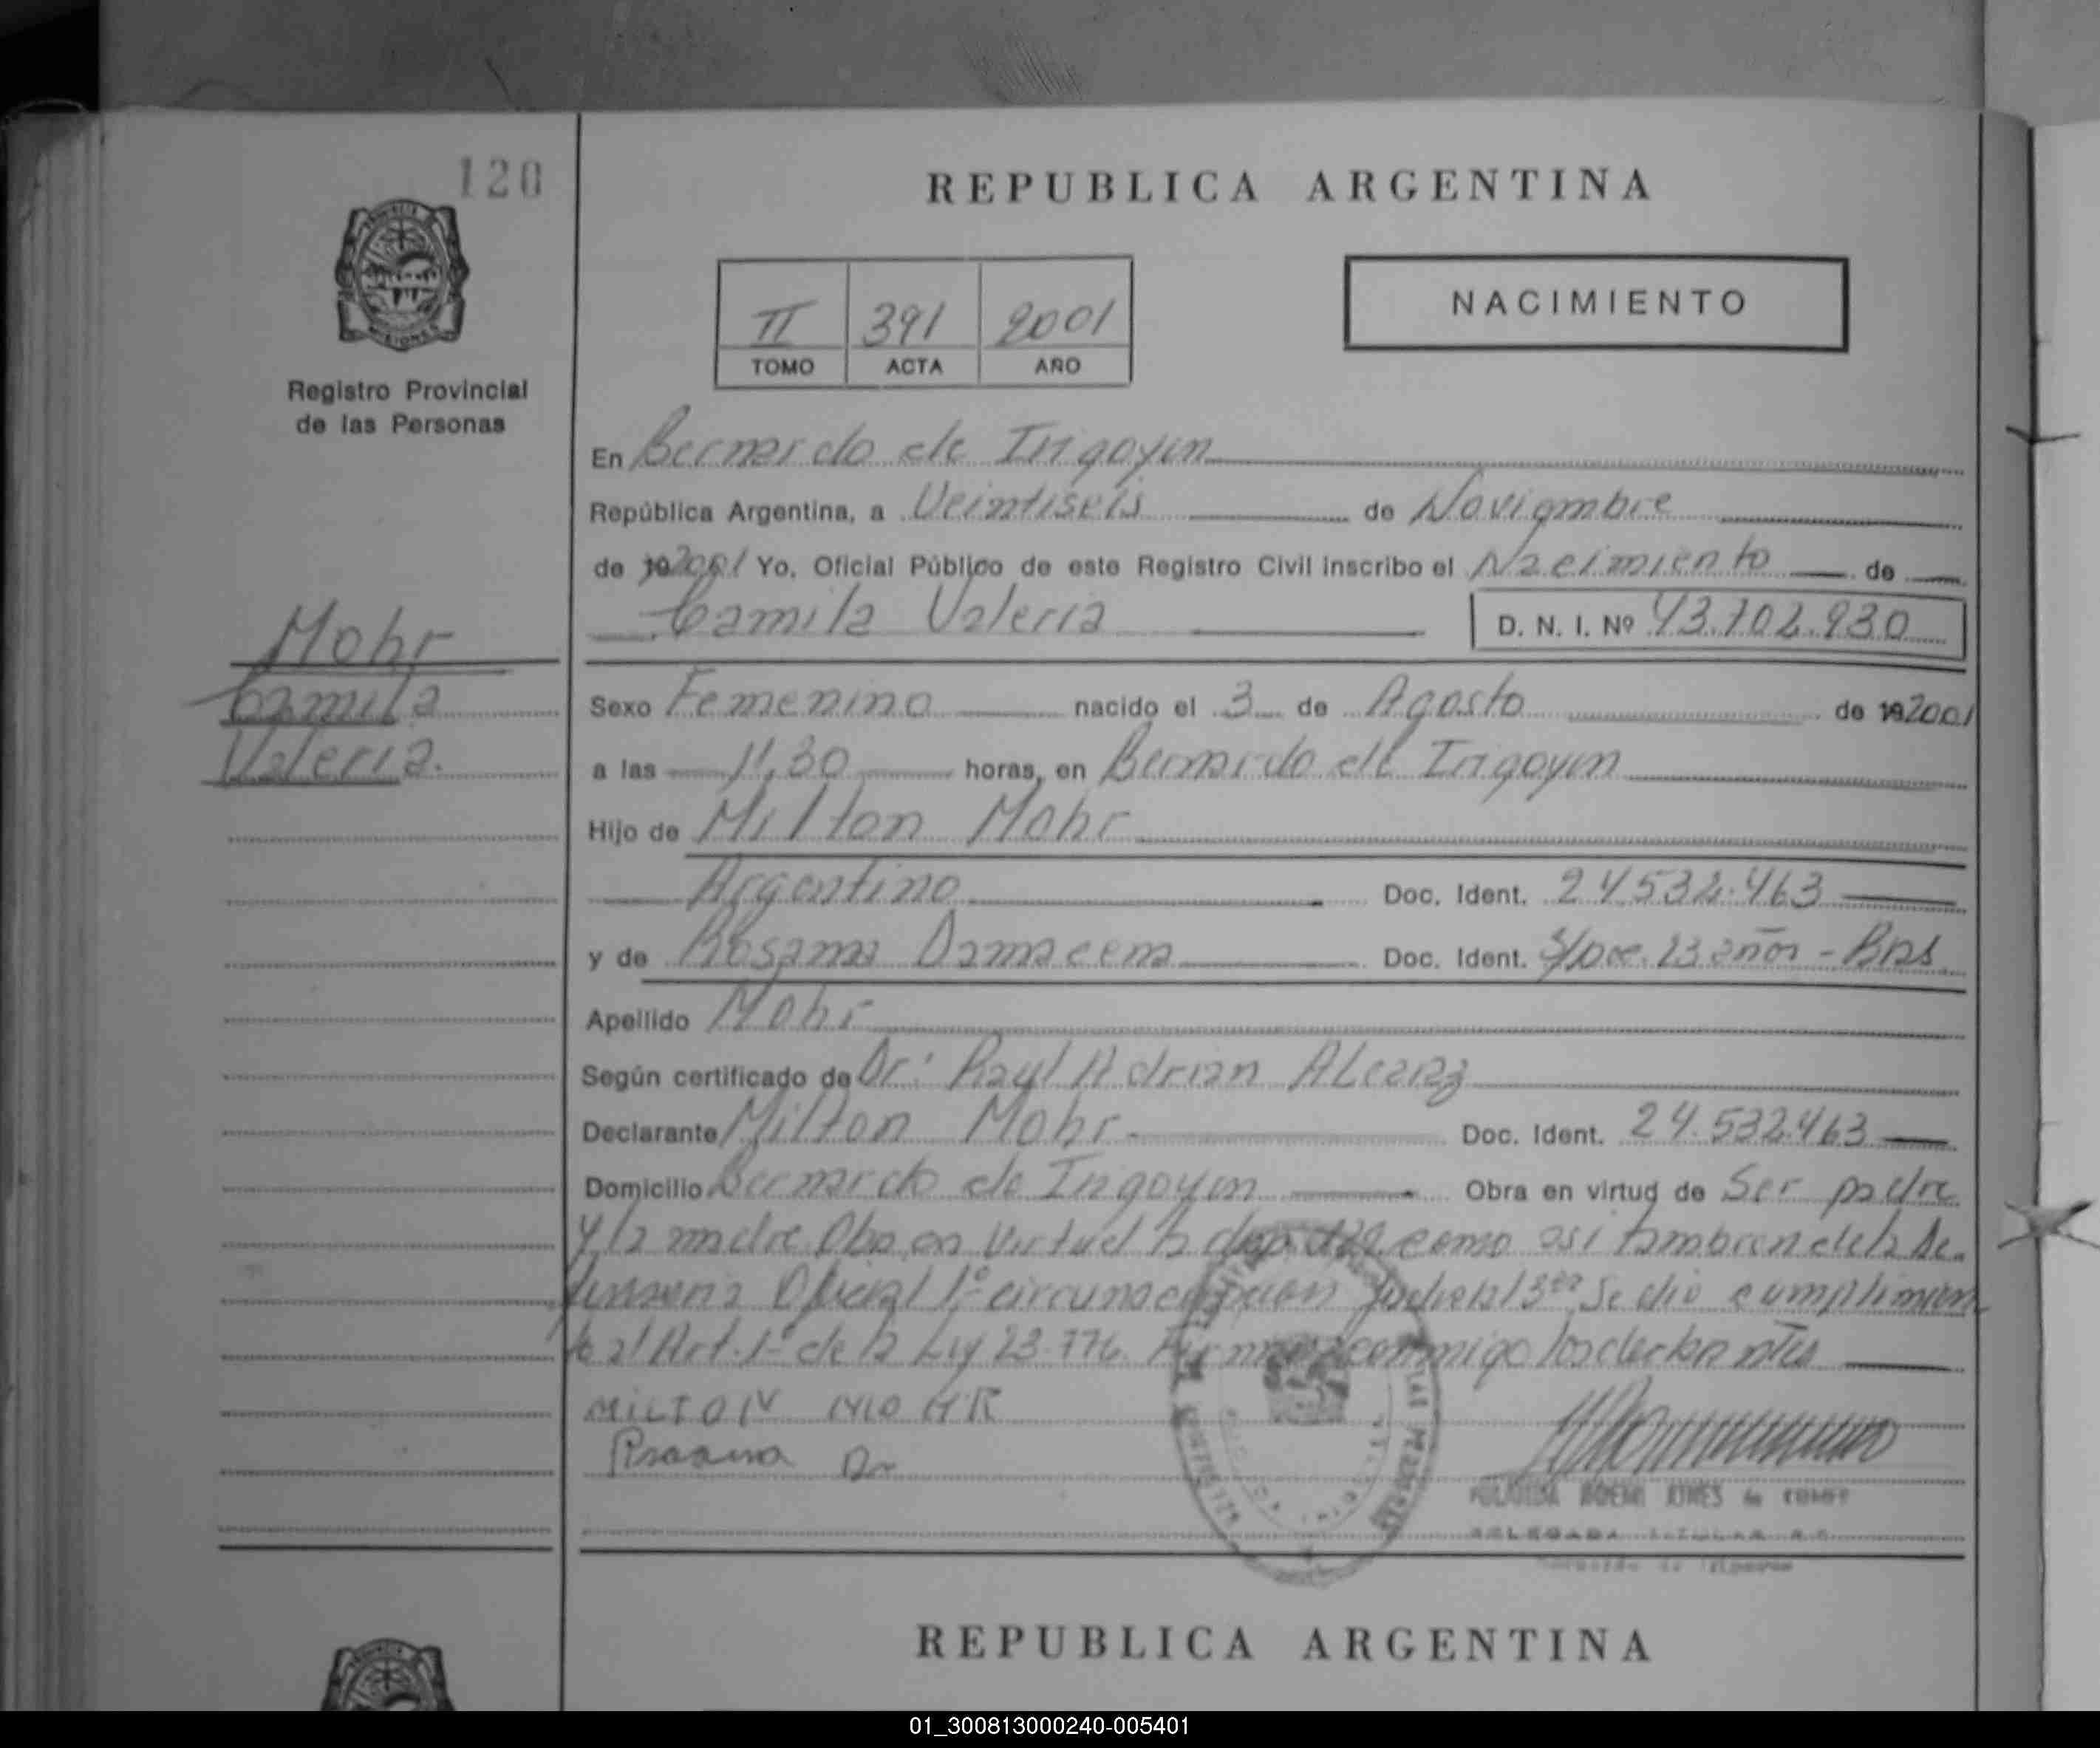 120
REPUBLICA ARGENTINA
NACIMIENTO
II 391 2001
TOMO ACTA AÑO
Registro Provincial
de las Personas
En Bernardo de Irigoyen
República Argentina, a Veintiseis de Noviembre
de 19 2001 Yo, Oficial Público de este Registro Civil inscribo el Nacimiento de
Camila Valeria D. N. I. Nº 43.702.930
Mohr
Camila
Valeria.
Sexo Femenino nacido el 3 de Agosto de 19 2001
a las 11,30 horas, en Bernardo de Irigoyen
Hijo de Milton Mohr
Argentino Doc. Ident. 24.532.463
y de Rosana Damacena Doc. Ident. S/Doc. 23 años - Bras
Apellido Mohr
Según certificado de Dr: Raul Adrian Alcaraz
Declarante Milton Mohr Doc. Ident. 24.532.463
Domicilio Bernardo de Irigoyen Obra en virtud de Ser padre
y la madre Obra en Virtud lo como asi tambien de la De-
fensoria Oficial 1º circunscripcion Judicial Se dio cumplimien
to al Art. 1º de la Ley 23.776. Firman conmigo los declarantes
MILTON MOHR
Rosana Da
de
DELEGADA TITULAR R.P.
Bernardo de Irigoyen
REPUBLICA ARGENTINA
01_300813000240-005401